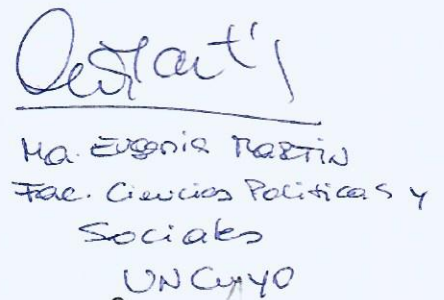 Ma. Eugenia MARTIN
Fac. Ciencias Políticas y
Sociales
UNCuyo